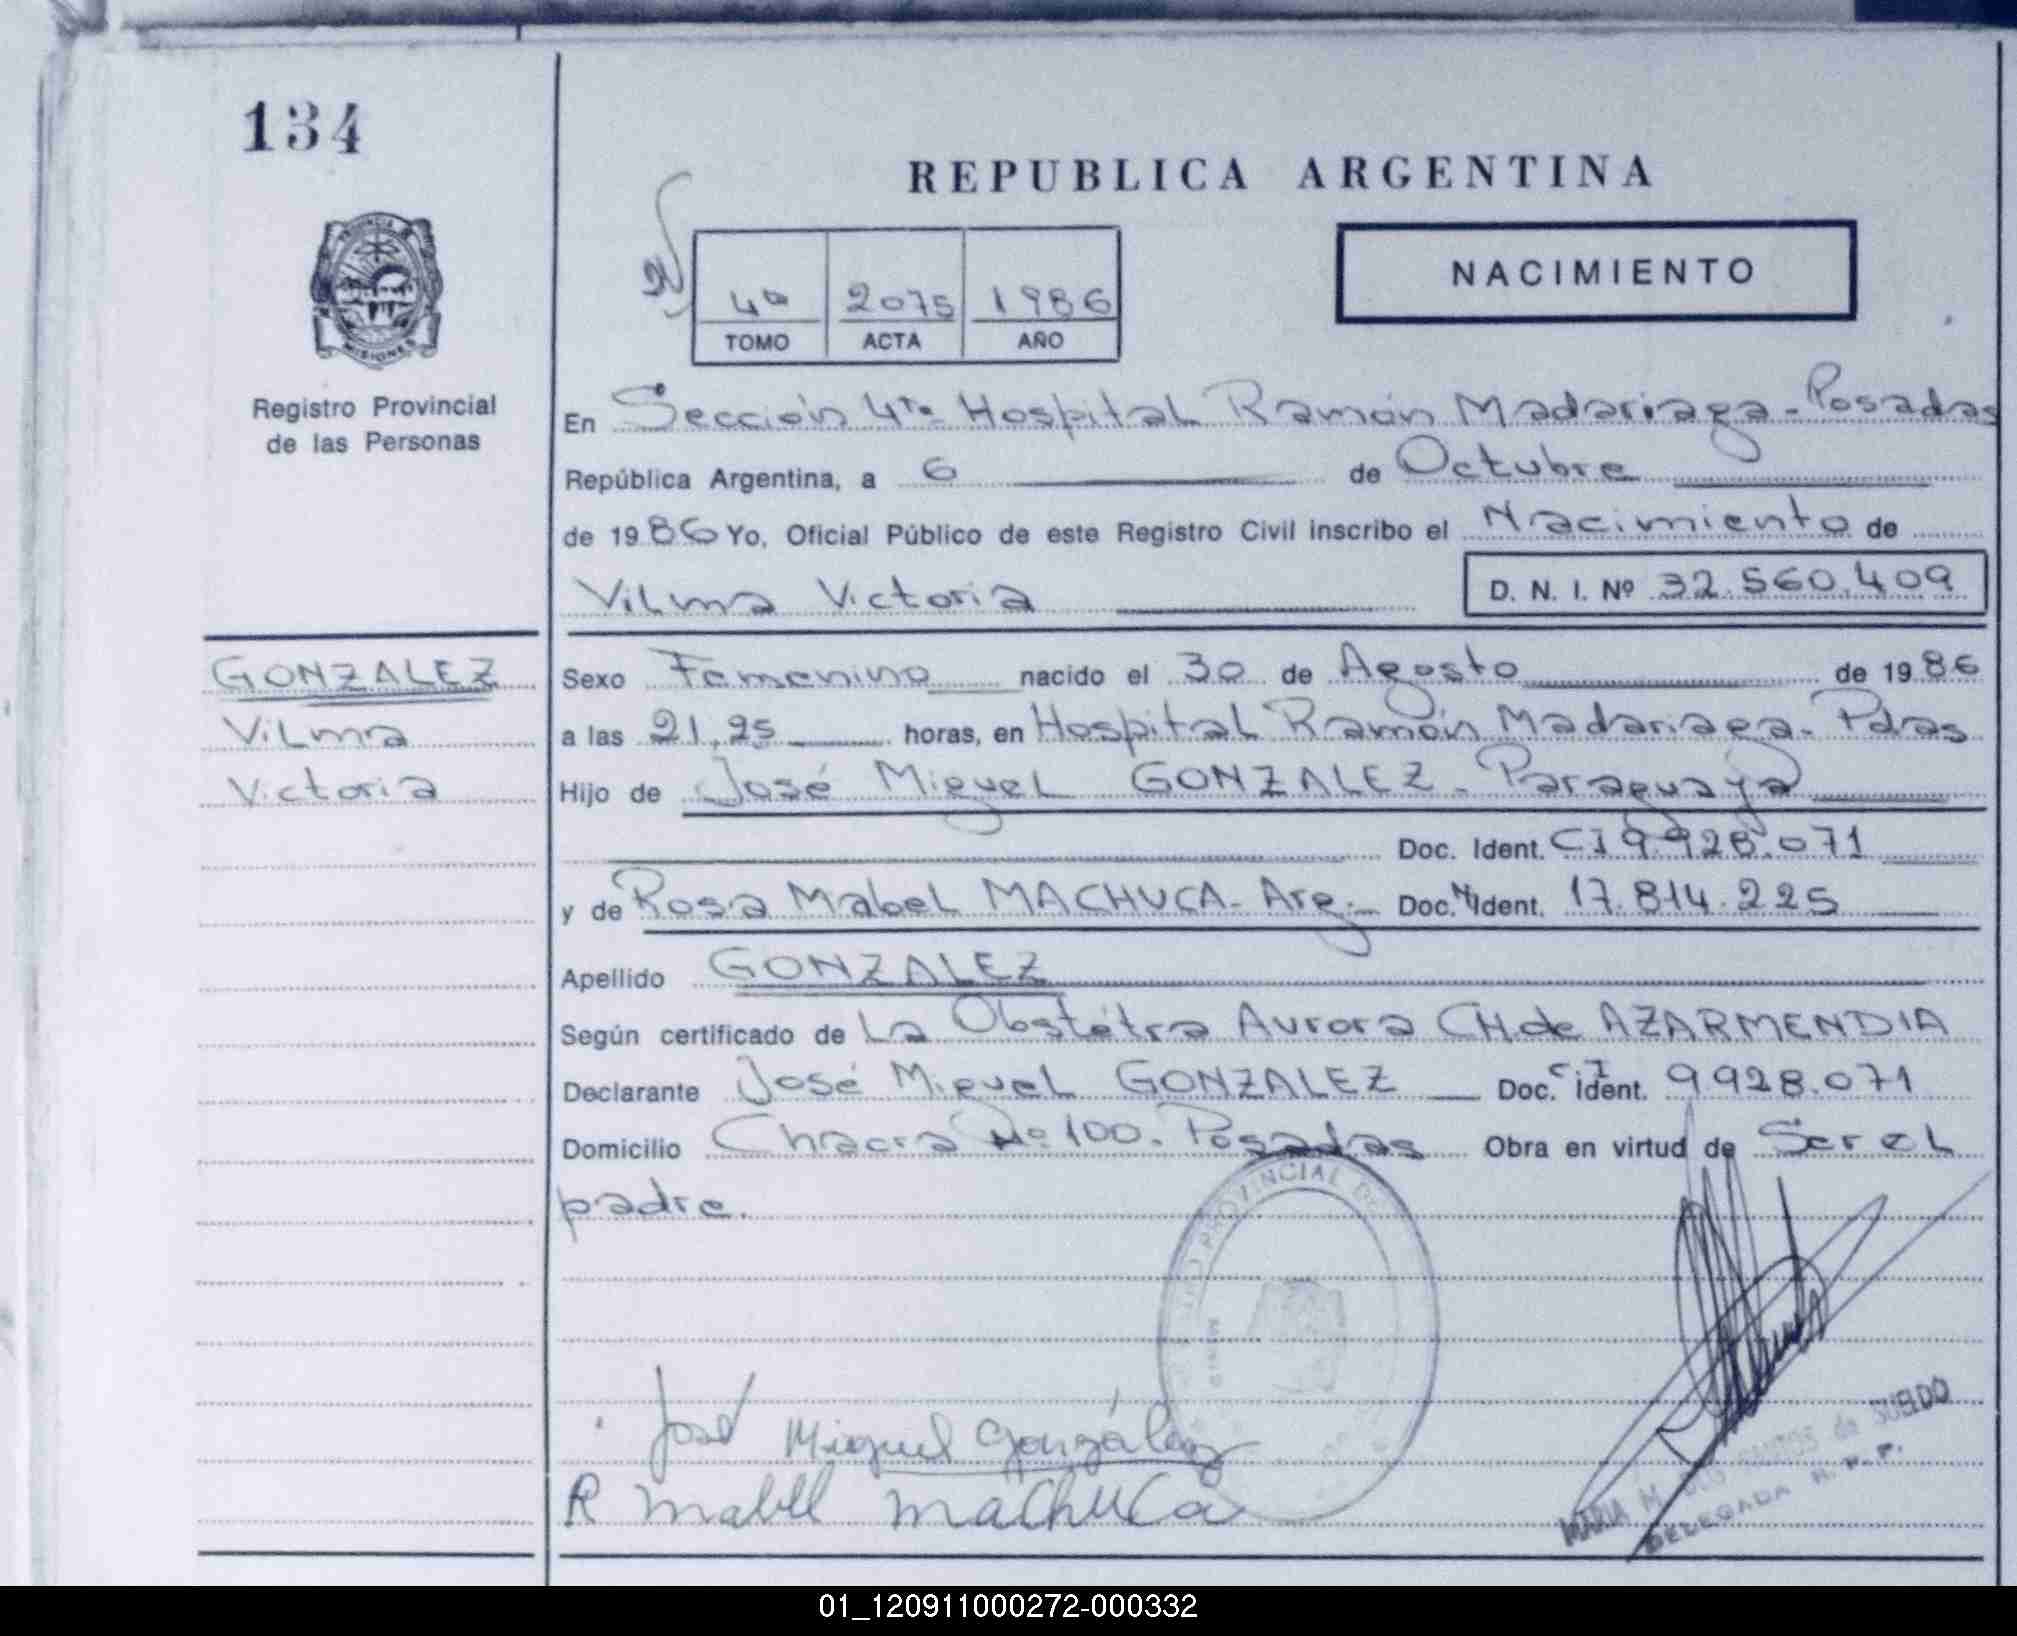 134
REPUBLICA ARGENTINA
NACIMIENTO
4ª 2075 1986
TOMO ACTA AÑO
PROVINCIA DE
MISIONES
Registro Provincial
de las Personas
En Sección 4ta Hospital Ramón Madariaga - Posadas
República Argentina, a 6 de Octubre
de 1986 Yo, Oficial Público de este Registro Civil inscribo el Nacimiento de
Vilma Victoria D. N. I. Nº 32.560.409
GONZALEZ
Vilma
Victoria
Sexo Femenino nacido el 30 de Agosto de 1986
a las 21,25 horas, en Hospital Ramón Madariaga - Pdas
Hijo de José Miguel GONZALEZ - Paraguaya
Doc. Ident. CI 9.928.071
y de Rosa Mabel MACHUCA - Arg. Doc. Ident. 17.814.225
Apellido GONZALEZ
Según certificado de La Obstétra Aurora CH. de AZARMENDIA
Declarante José Miguel GONZALEZ Doc. CI Ident. 9.928.071
Domicilio Chacra Nº 100. Posadas Obra en virtud de Ser el
padre.
PROVINCIAL DE
José Miguel González
R Mabel Machuca
MARIA M. de SUELDO
DELEGADA R. P. P.
01_120911000272-000332